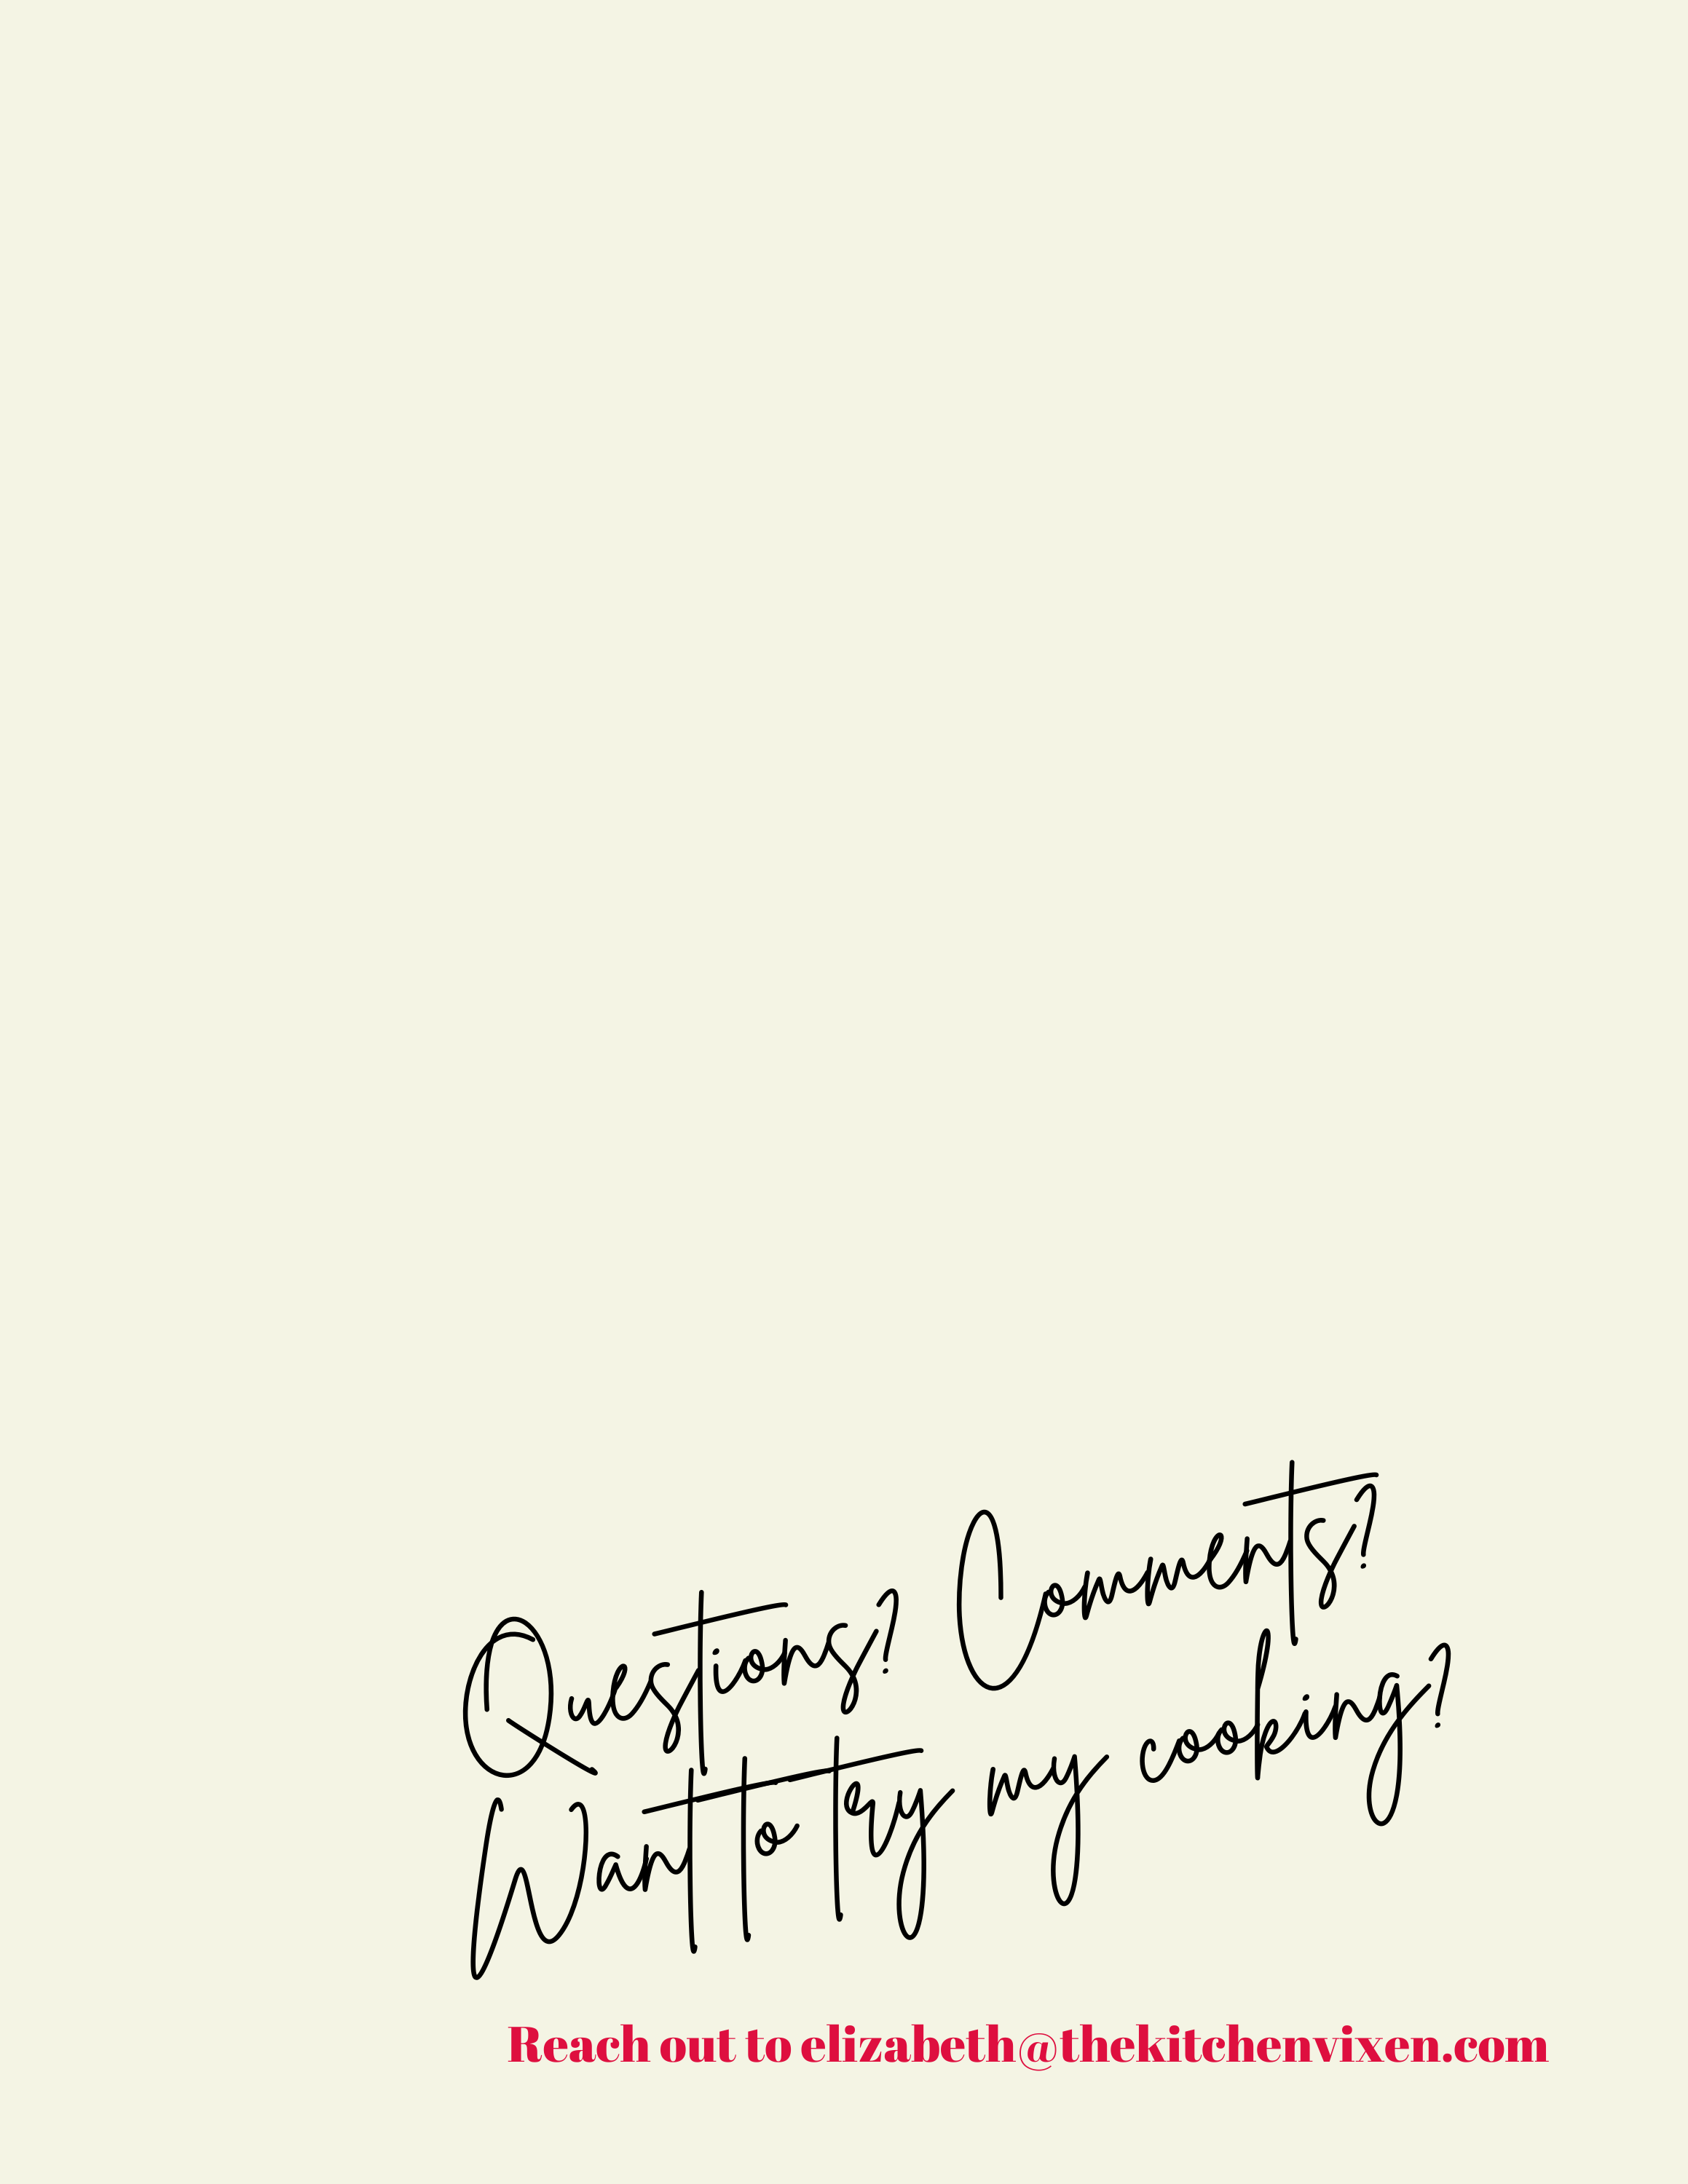 Questions? Comments?
Want to try my cooking?
Reach out to elizabeth@thekitchenvixen.com